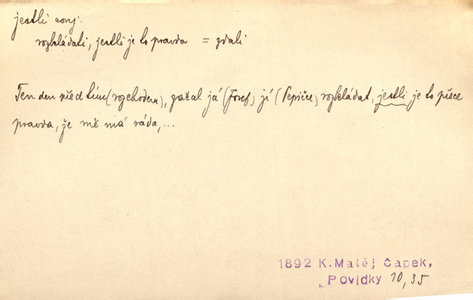 jestli conj.
rozkládati, jestli je to pravda = zdali
Ten den před tím (rozchodem), začal já (Josef) jí (Pepičce) rozkládat, jestli je to přece
pravda, že mě má ráda,...
1892 K. Matěj Čapek,
Povídky 10, 35